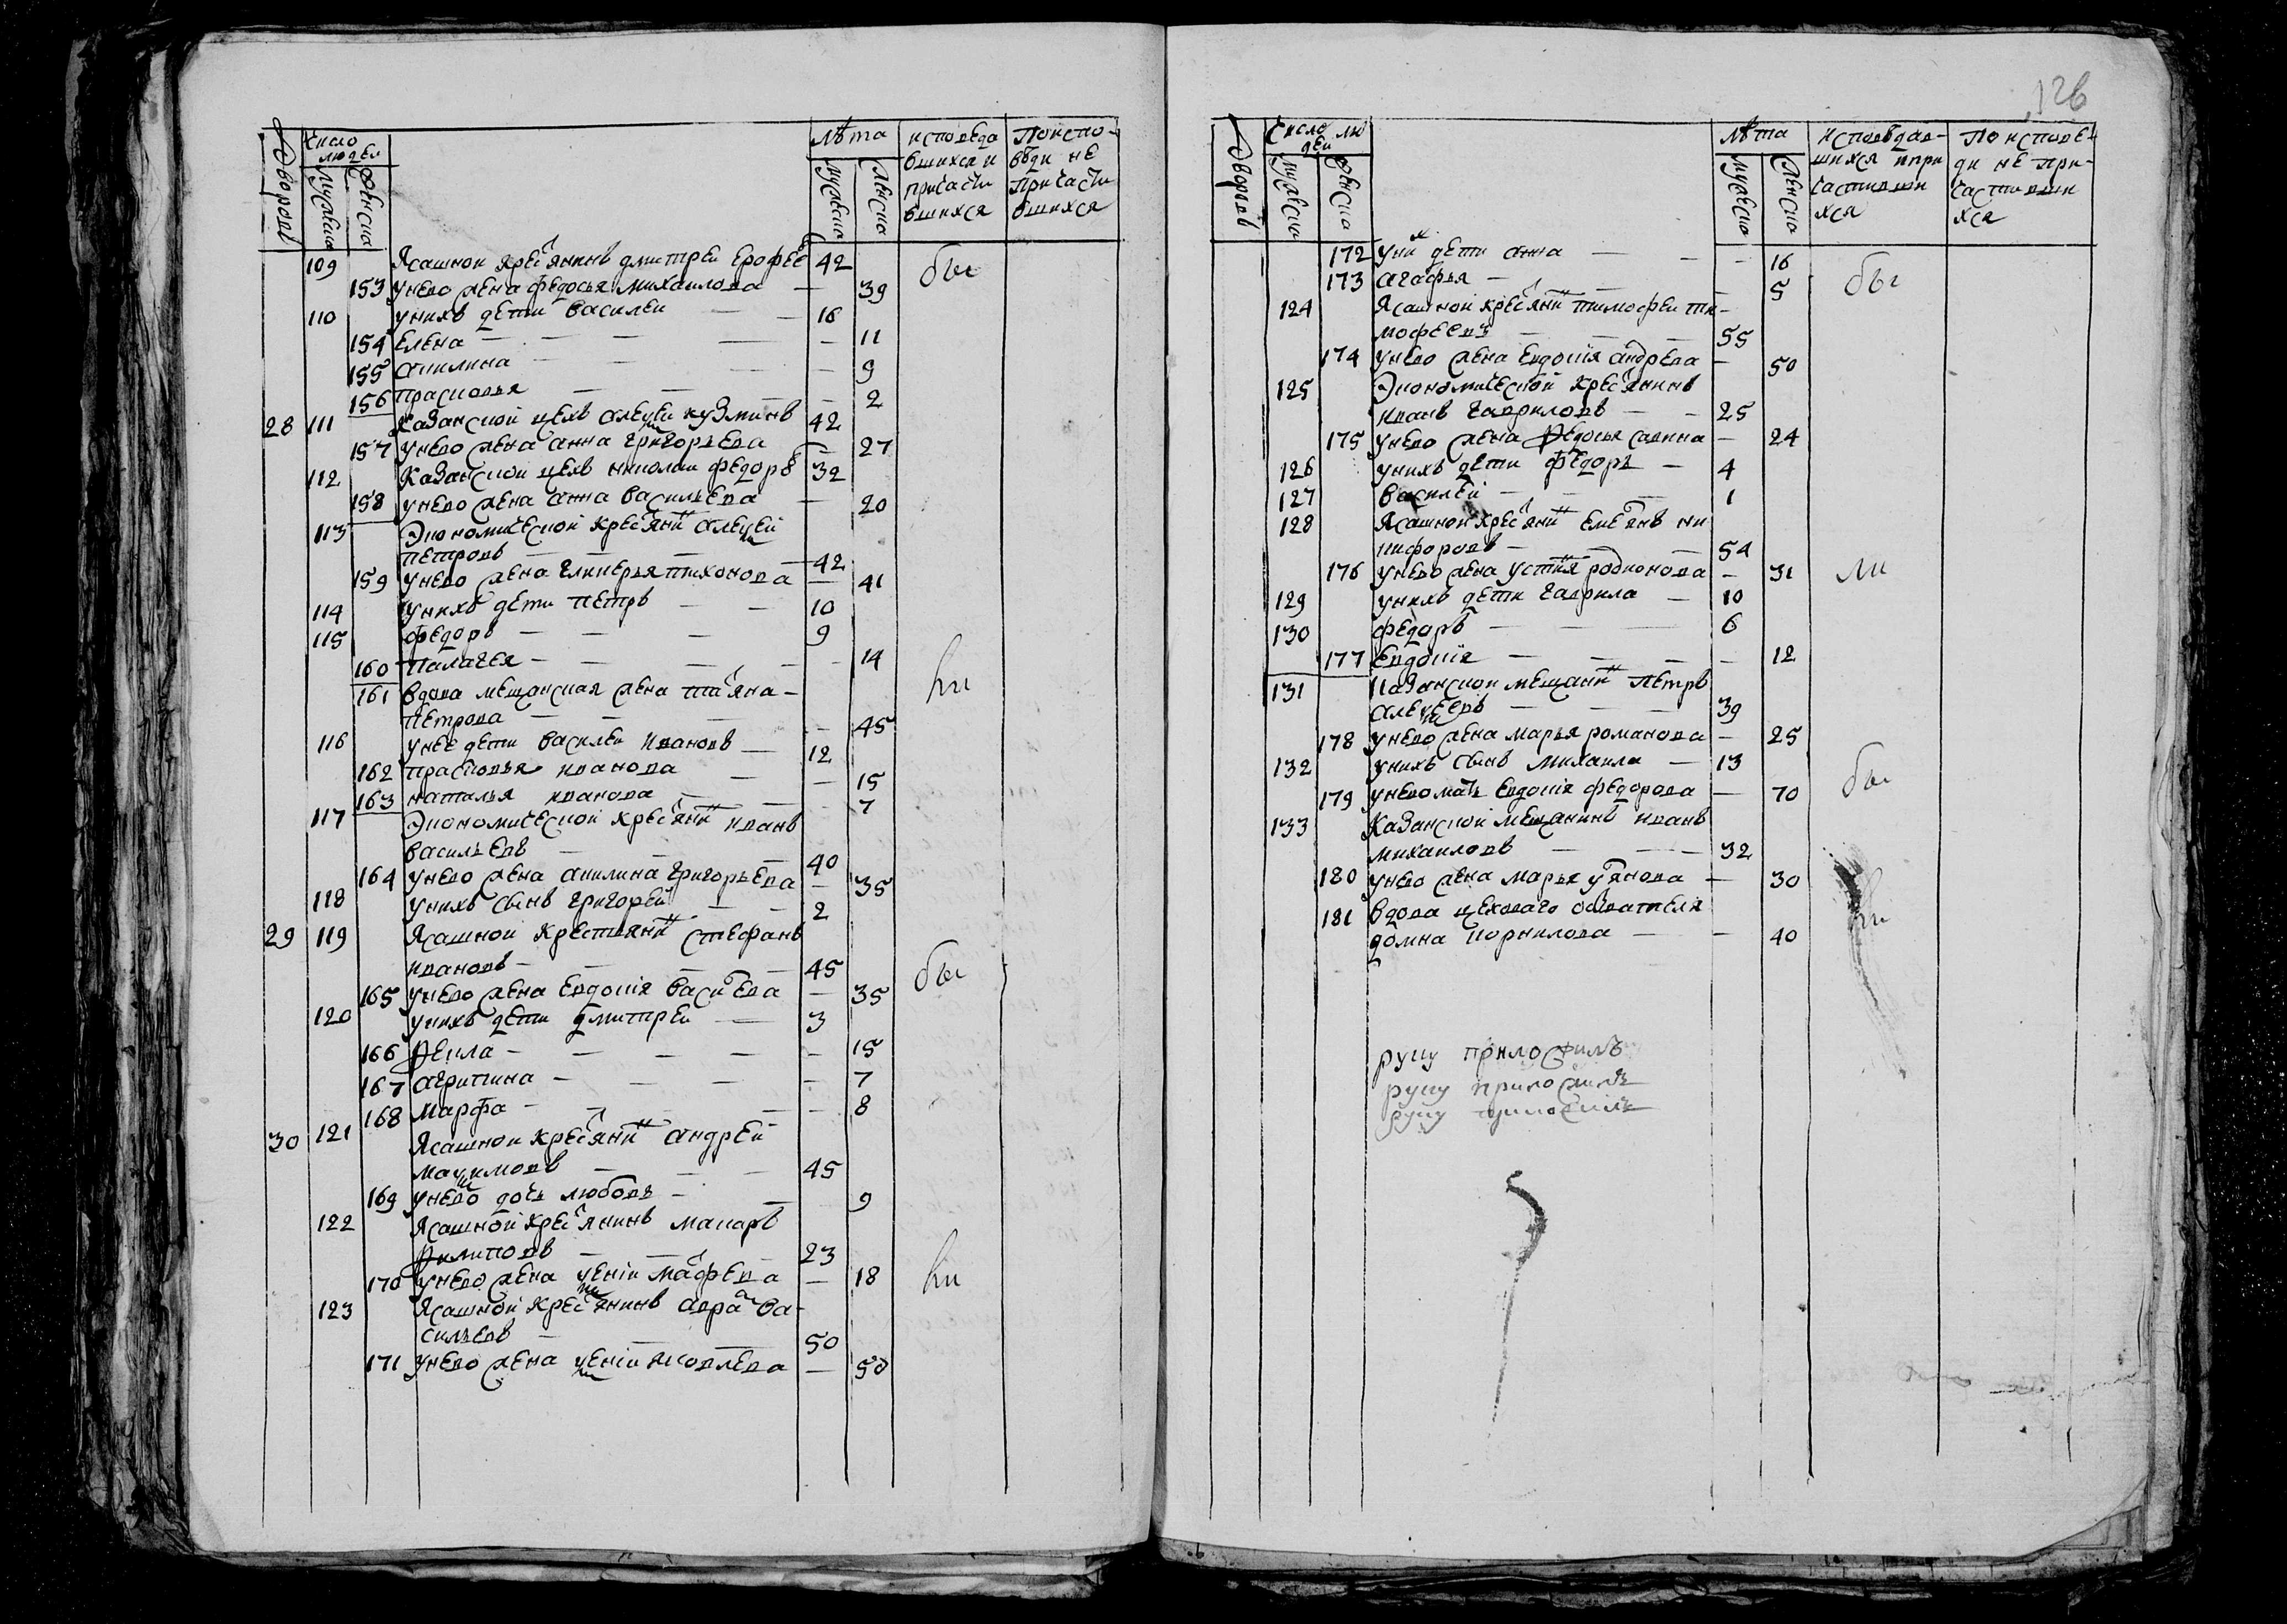 126
дворовъ
число людей
мужеска
женска
лѣта
мужеска
женска
исповеда
вшихся и
причасти
вшихся
По испо-
вѣди не
причасти
вшихся
109 Ясашнои крестьянинъ дмитреи ерофее 42
153 унево жена федосья михаилова — 39
бы
110 унихъ дети василеи — — 16
154 Елена — — — — 11
155 акилина — — — — 9
156 прасковья — — — 2
28 111 казанской цехъ алексеи кузминъ 42
157 унево жена анна григорьева — 27
112 Казанскои цехъ николаи федоръ 32
158 унево жена анна васильева — 20
113 Экономической крестьянинъ алексей
петровъ — — — 42
159 унево жена гликерья тихонова — 41
114 унихъ дети петръ — — 10
115 федоръ — — — 9
160 палагея — — — — 14
161 вдова мещанская жена татьяна —
петрова — — — 45
ли
116 унее дети василеи ивановъ — 12
162 прасковья иванова — — 15
163 наталья иванова — — 7
117 Экономической крестьянинъ иванъ
васильевъ — — — 40
164 унево жена акилина григорьева — 35
118 унихъ сынъ григорей — — 2
29 119 Ясашной крестьянинъ стефанъ
ивановъ — — — — 45
бы
165 унево жена евдокія васильева — 35
120 унихъ дети дмитреи — 3
166 фекла — — — — — 15
167 агрипина — — — — 7
168 марфа — — — — 8
30 121 Ясашнои крестьянинъ андрей
максимовъ — — — 45
169 унево дочь любовь — — 9
122 Ясашной крестьянинъ макаръ
филиповъ — — — 23
170 унево жена ксеніи матфеева — 18
ли
123 Ясашной крестьянинъ аврам ва-
сильевъ — — 50
171 унево жена ксеніи яковлева — 50
дворовъ
число лю
дей
мужеска
женска
лѣта
мужеска
женска
исповѣдав-
шихся и при
частивши
хся
По исповѣ-
ди не при-
частивши
хся
172 уних дети анна — — — 16
173 агафья — — — 5
бы
124 Ясашной крестьянинъ тимофеи ти-
мофеевъ — — — 55
174 унево жена евдокія андреева — 50
125 Экономической крестьянинъ
иванъ гавриловъ — — 25
175 унево жена федосья савина — 24
126 унихъ дети федоръ — 4
127 василей — — — 1
128 Ясашнои крестьянинъ емельянъ ни
кифоровъ — — — 54
176 унево жена устинья родионова — 31
ли
129 унихъ дети гаврила — 10
130 федоръ — — — 6
177 евдокія — — — — — 12
131 Казанскои мещанинъ петръ
алексеевъ — — — 39
178 унево жена марья романова — 25
132 унихъ сынъ михаила — 13
179 унево мать евдокія федорова — 70
бы
133 Казанской мещанинъ иванъ
михаиловъ — — — 32
180 унево жена марья ульянова — 30
181 вдова цеховаго
домна корнилова — — 40
ли
руку приложилъ
руку приложилъ
руку приложилъ